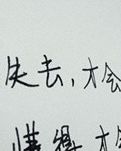 失去，才会
懂得